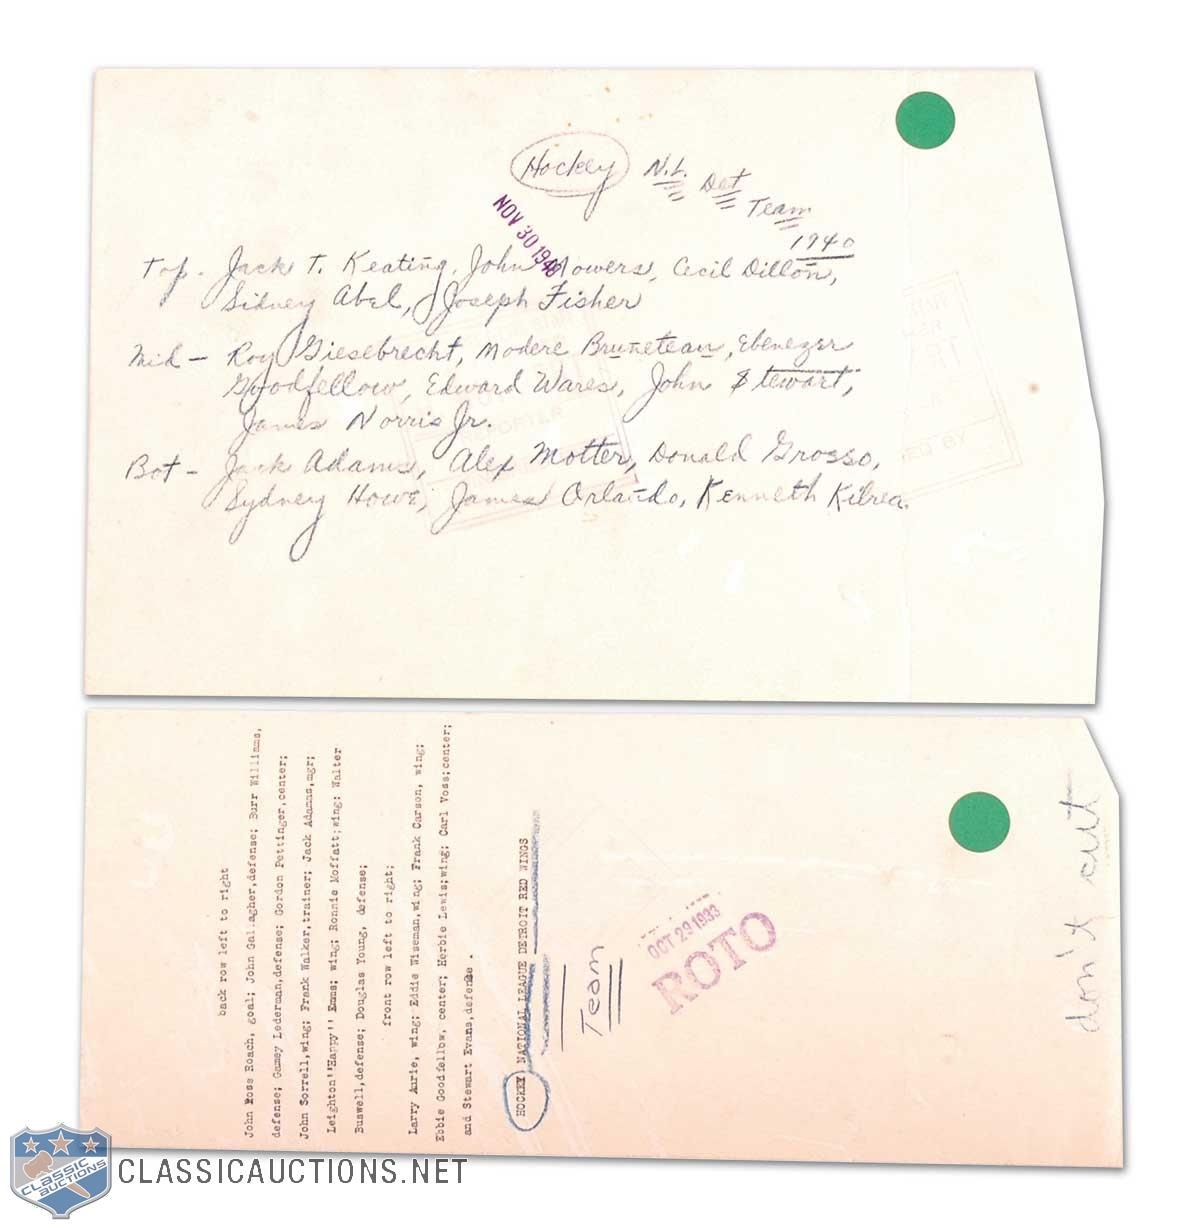 Hockey N.L. Det Team
1940
NOV 30 1940
Top - Jack T. Keating, John Mowers, Cecil Dillon,
Sidney Abel, Joseph Fisher
Mid - Roy Giesebrecht, Modere Bruneteau, Ebenezer
Goodfellow, Edward Wares, John Stewart,
James Norris Jr.
Bot - Jack Adams, Alex Motter, Donald Grosso,
Sydney Howe, James Orlando, Kenneth Kilrea.
back row left to right
John Ross Roach, goal; John Gallagher,defense; Burr Williams,
defense; Gamey Lederman,defense; Gordon Pettinger,center;
John Sorrell,wing; Frank Walker,trainer; Jack Adams,mgr;
Leighton''Happy'' Emms; wing; Ronnie Moffatt;wing; Walter
Buswell,defense; Douglas Young, defense;
front row left to right;
Larry Aurie, wing; Eddie Wiseman,wing; Frank Carson, wing;
Ebbie Goodfellow, center; Herbie Lewis;wing; Carl Voss;center;
and Stewart Evans,defense .
HOCKEY NATIONAL LEAGUE DETROIT RED WINGS
Team
OCT 29 1933
ROTO
don't cut
CLASSIC
AUCTIONS
CLASSICAUCTIONS.NET